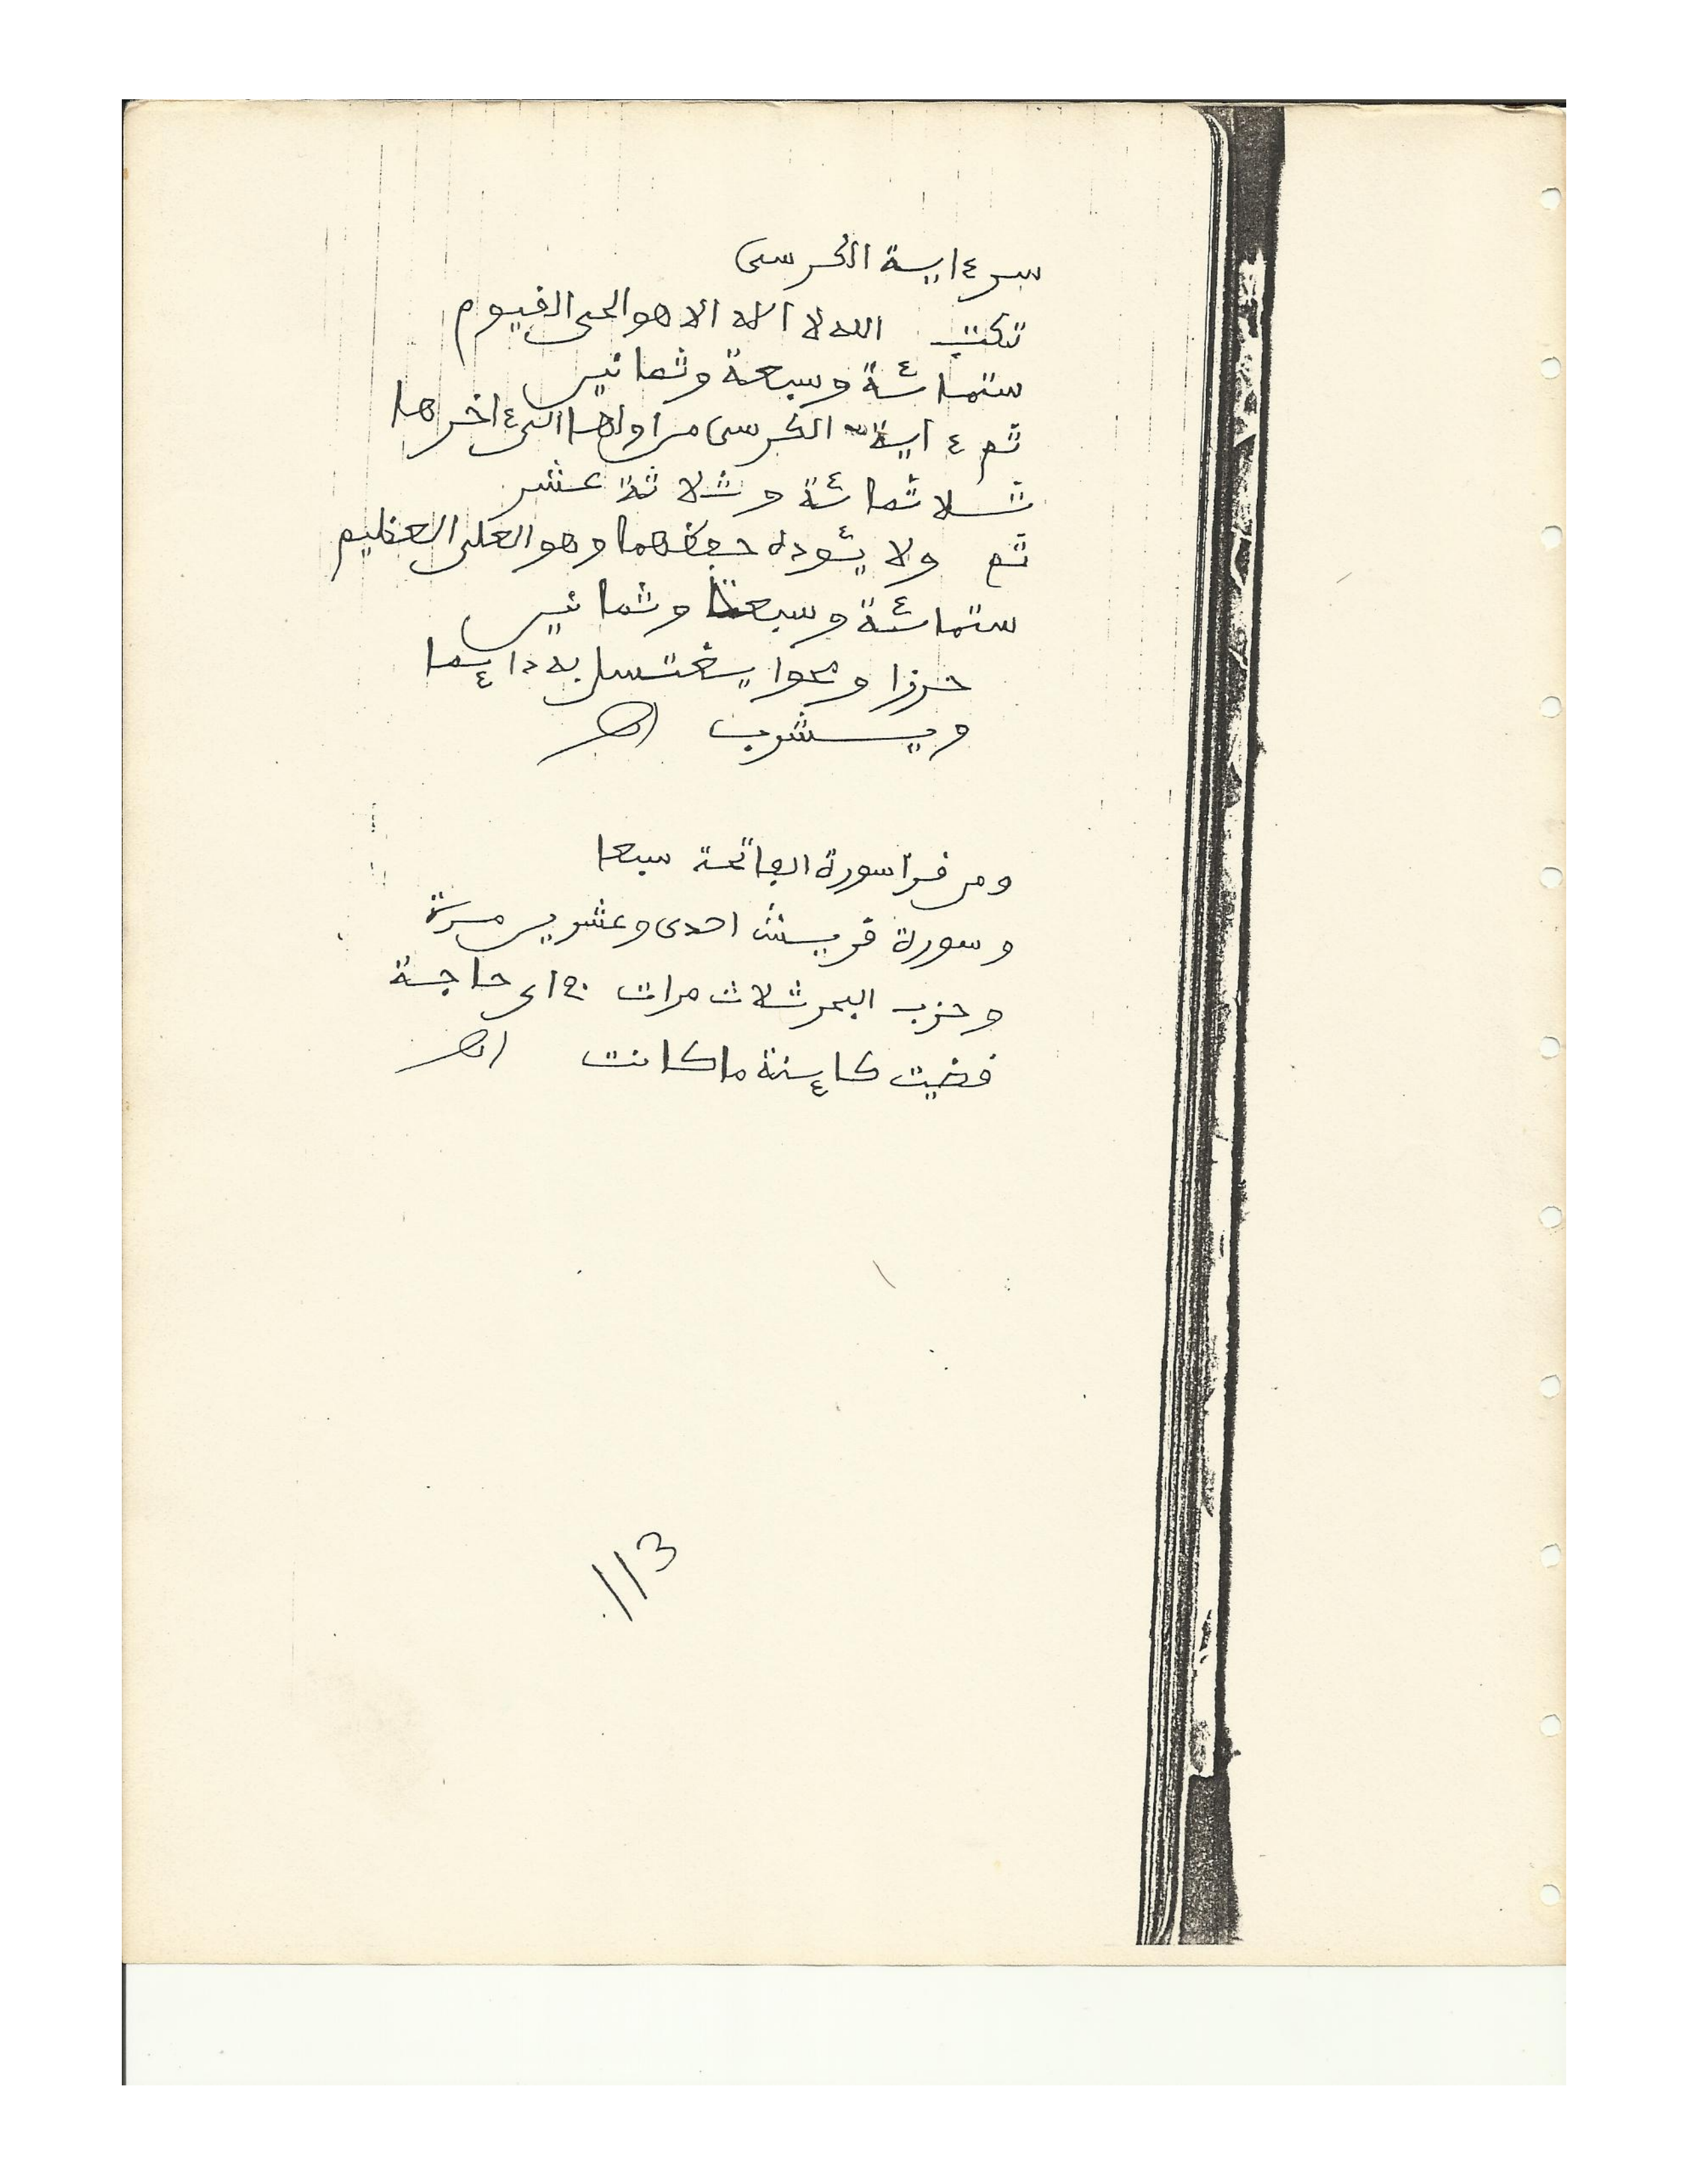 سر ءاية الكرسى
تكتب الله لا اله الا هو الحى القيوم
ستمائة وسبعة وثمانين
ثم ءاية الكرسى من اولها الى ءاخرها
ثلاثمائة وثلاثة عشر
ثم ولا يئوده حفظهما وهو العلى العظيم
ستمائة وسبعة وثمانين
حرزا ومحوا يغتسل به دائما
ويشرب اﻫ
ومن قرا سورة الفاتحة سبعا
وسورة قريش احدى وعشرين مرة
وحزب البحر ثلاث مرات في اى حاجة
قضيت كائنة ما كانت اﻫ
113